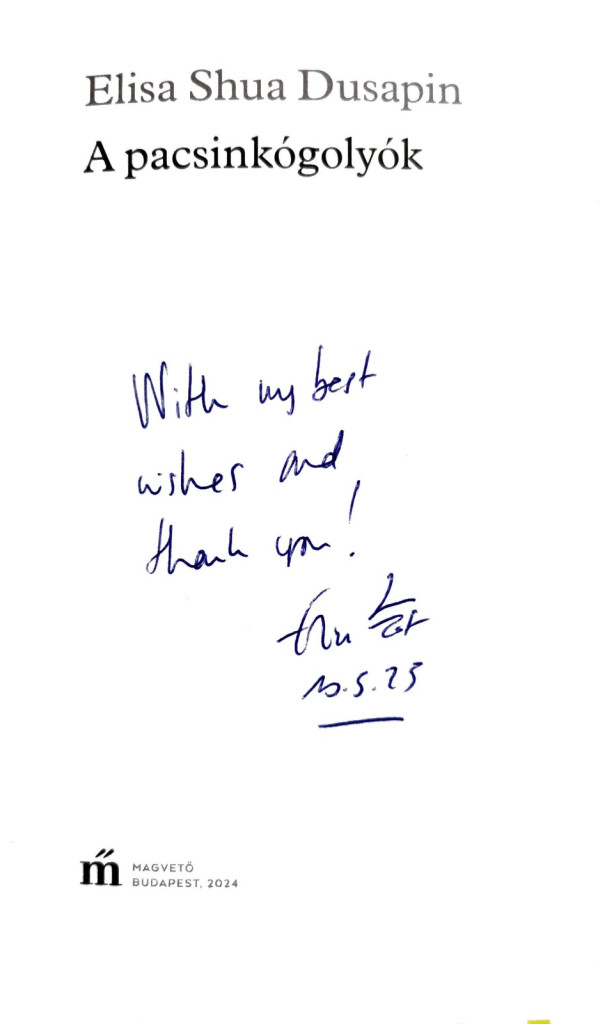 Elisa Shua Dusapin
A pacsinkógolyók
With my best
wishes and
thank you!
MAGVETŐ
BUDAPEST, 2024